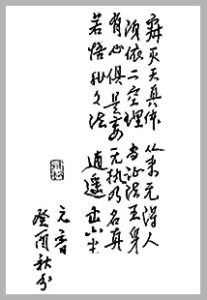 寂灭天真体 从来无得人
须依二空理 当证法王身
有心俱是妄 无执乃名真
若悟非々法 逍遥出六尘
元音
癸酉秋